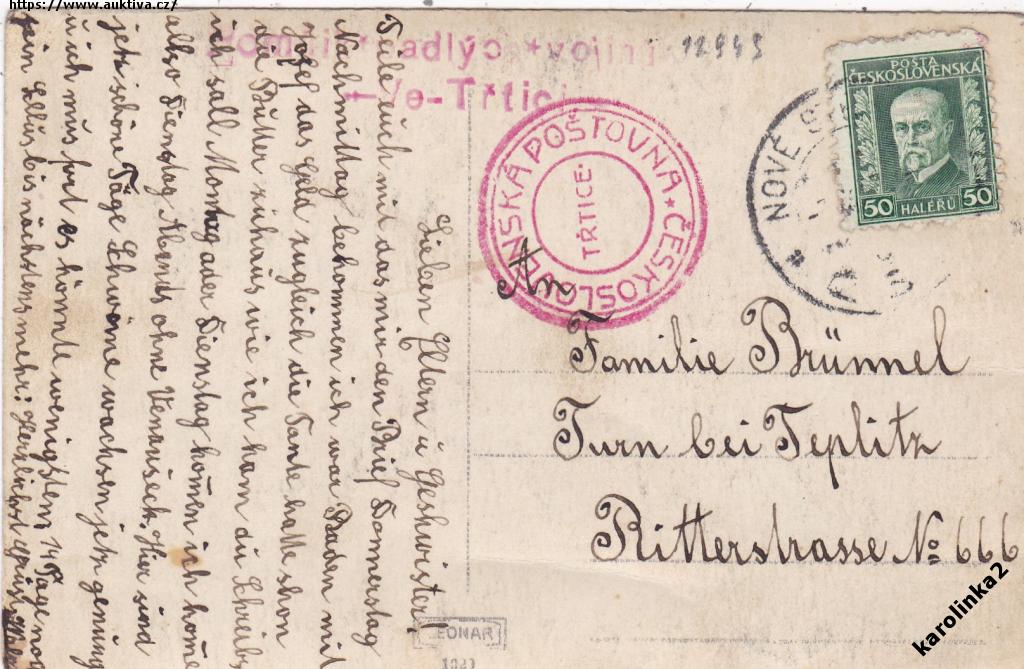 https://www.auktiva.cz/
adlýc vojínů
Ve-Třtici
12945
POŠTA
ČESKOSLOVENSKÁ
50 HALÉŘŮ 50
NOVÉ
POŠTOVNA ČESKOSLOVENSKÁ
TŘTICE
An
Familie Brünnel
Turn bei Teplitz
Ritterstrasse No 666
Lieben Eltern u Geshwister!
Teile euch mit das mir den Brief Donnerstag
Nachmittag bekommen ich war Baden mit
Josef das Geld zugleich die Tante hatte schon
die Butter zuhaus wie ich kam du Schreibst
ich sall Montag oder Dienstag komen ich kome
also Dienstag Abends ohne Hier sind
jetz schöne Tage Schweine wachsen jetz genung
u ich mus fort es könnte wenigstens 14 Tage noch
sein bis nächstens mehr. Herzlichst grüst
LEONAR
karolinka2